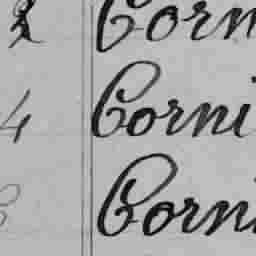 2 Corn
4 Corni
Corni